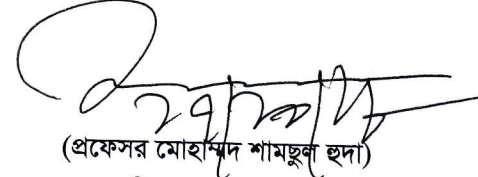 (প্রফেসর মোহাম্মদ শামছুল হুদা)